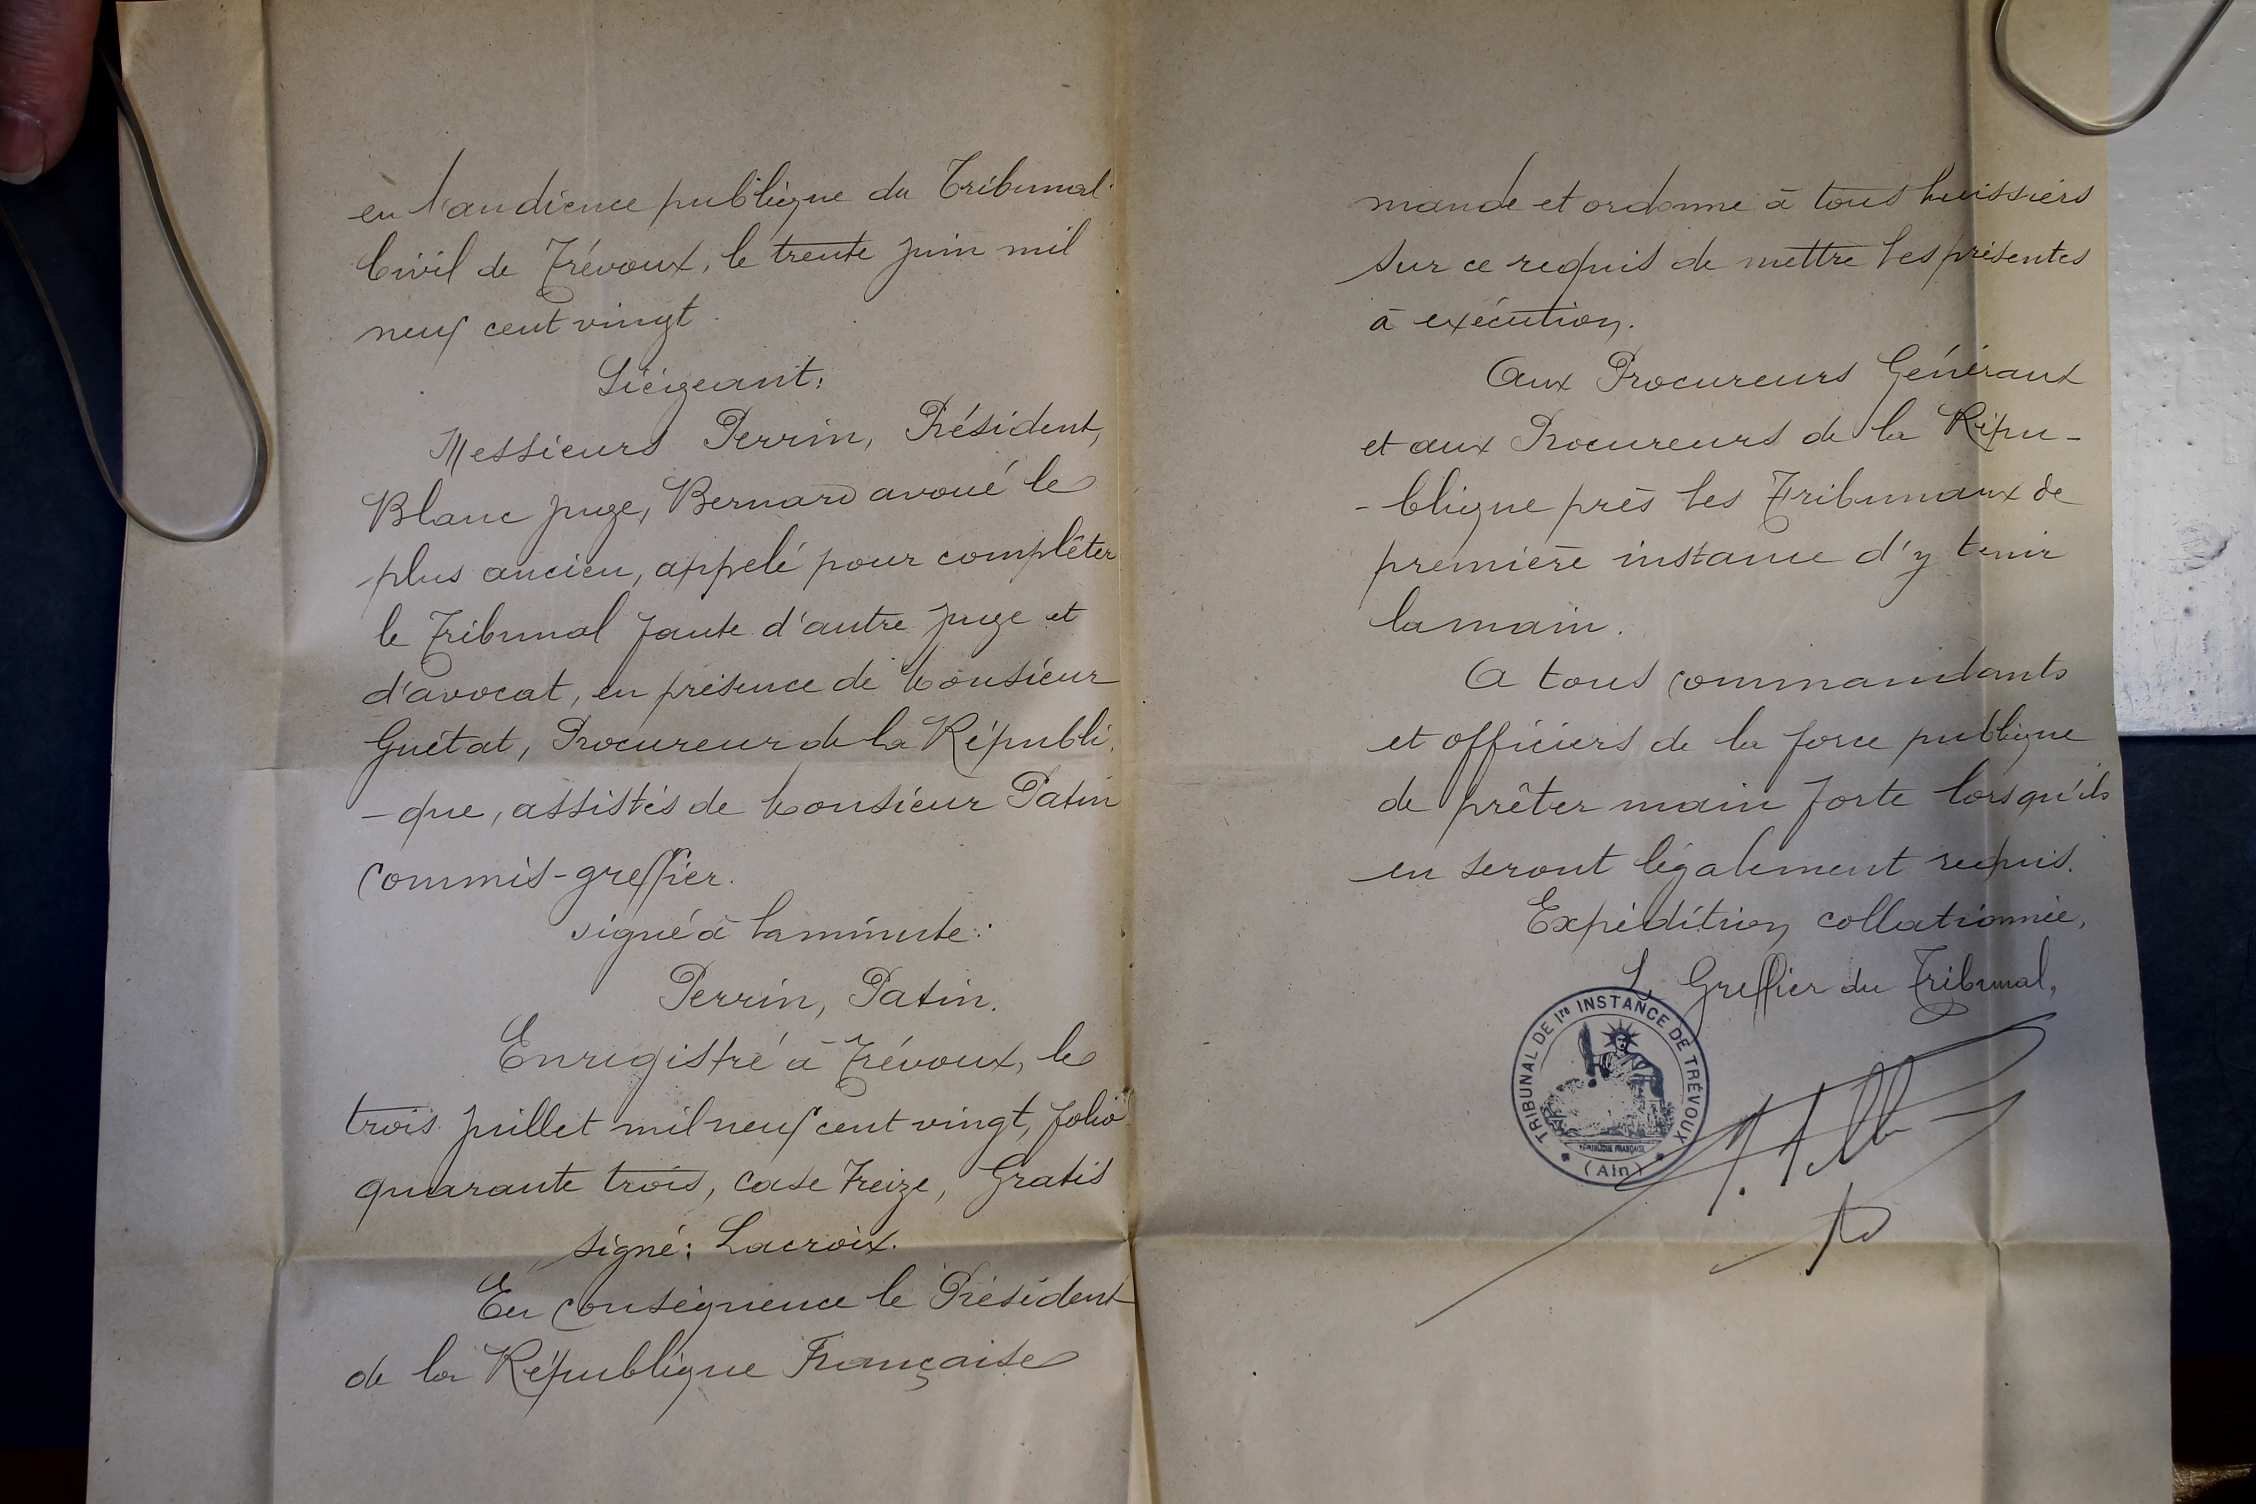 en l'audience publique du Tribunal
Civil de Trévoux, le trente juin mil
neuf cent vingt
Siégeant:
Messieurs Perrin, Président,
Blanc juge, Bernard avoué le
plus ancien, appelé pour complèter
le Tribunal faute d'autre juge et
d'avocat, en présence de Monsieur
Guétat, Procureur de la Républi-
-que, assistés de Monsieur Patin
commis-greffier.
signé à la minute:
Perrin, Patin.
Enregistré à Trévoux, le
trois juillet mil neuf cent vingt, folio
quarante trois, case treize, Gratis
signé: Lacroix.
En conséquence le Président
de la République Française
mande et ordonne à tous huissiers
sur ce requis de mettre les présentes
à exécution.
Aux Procureurs Généraux
et aux Procureurs de la Répu-
-blique près les Tribunaux de
première instance d'y tenir
la main.
A tous commandants
et officiers de la force publique
de prêter main forte lorsqu'ils
en seront légalement requis.
Expédition collationnée,
Le Greffier du Tribunal,
TRIBUNAL DE 1re INSTANCE DE TRÉVOUX
RÉPUBLIQUE FRANÇAISE
(Ain)